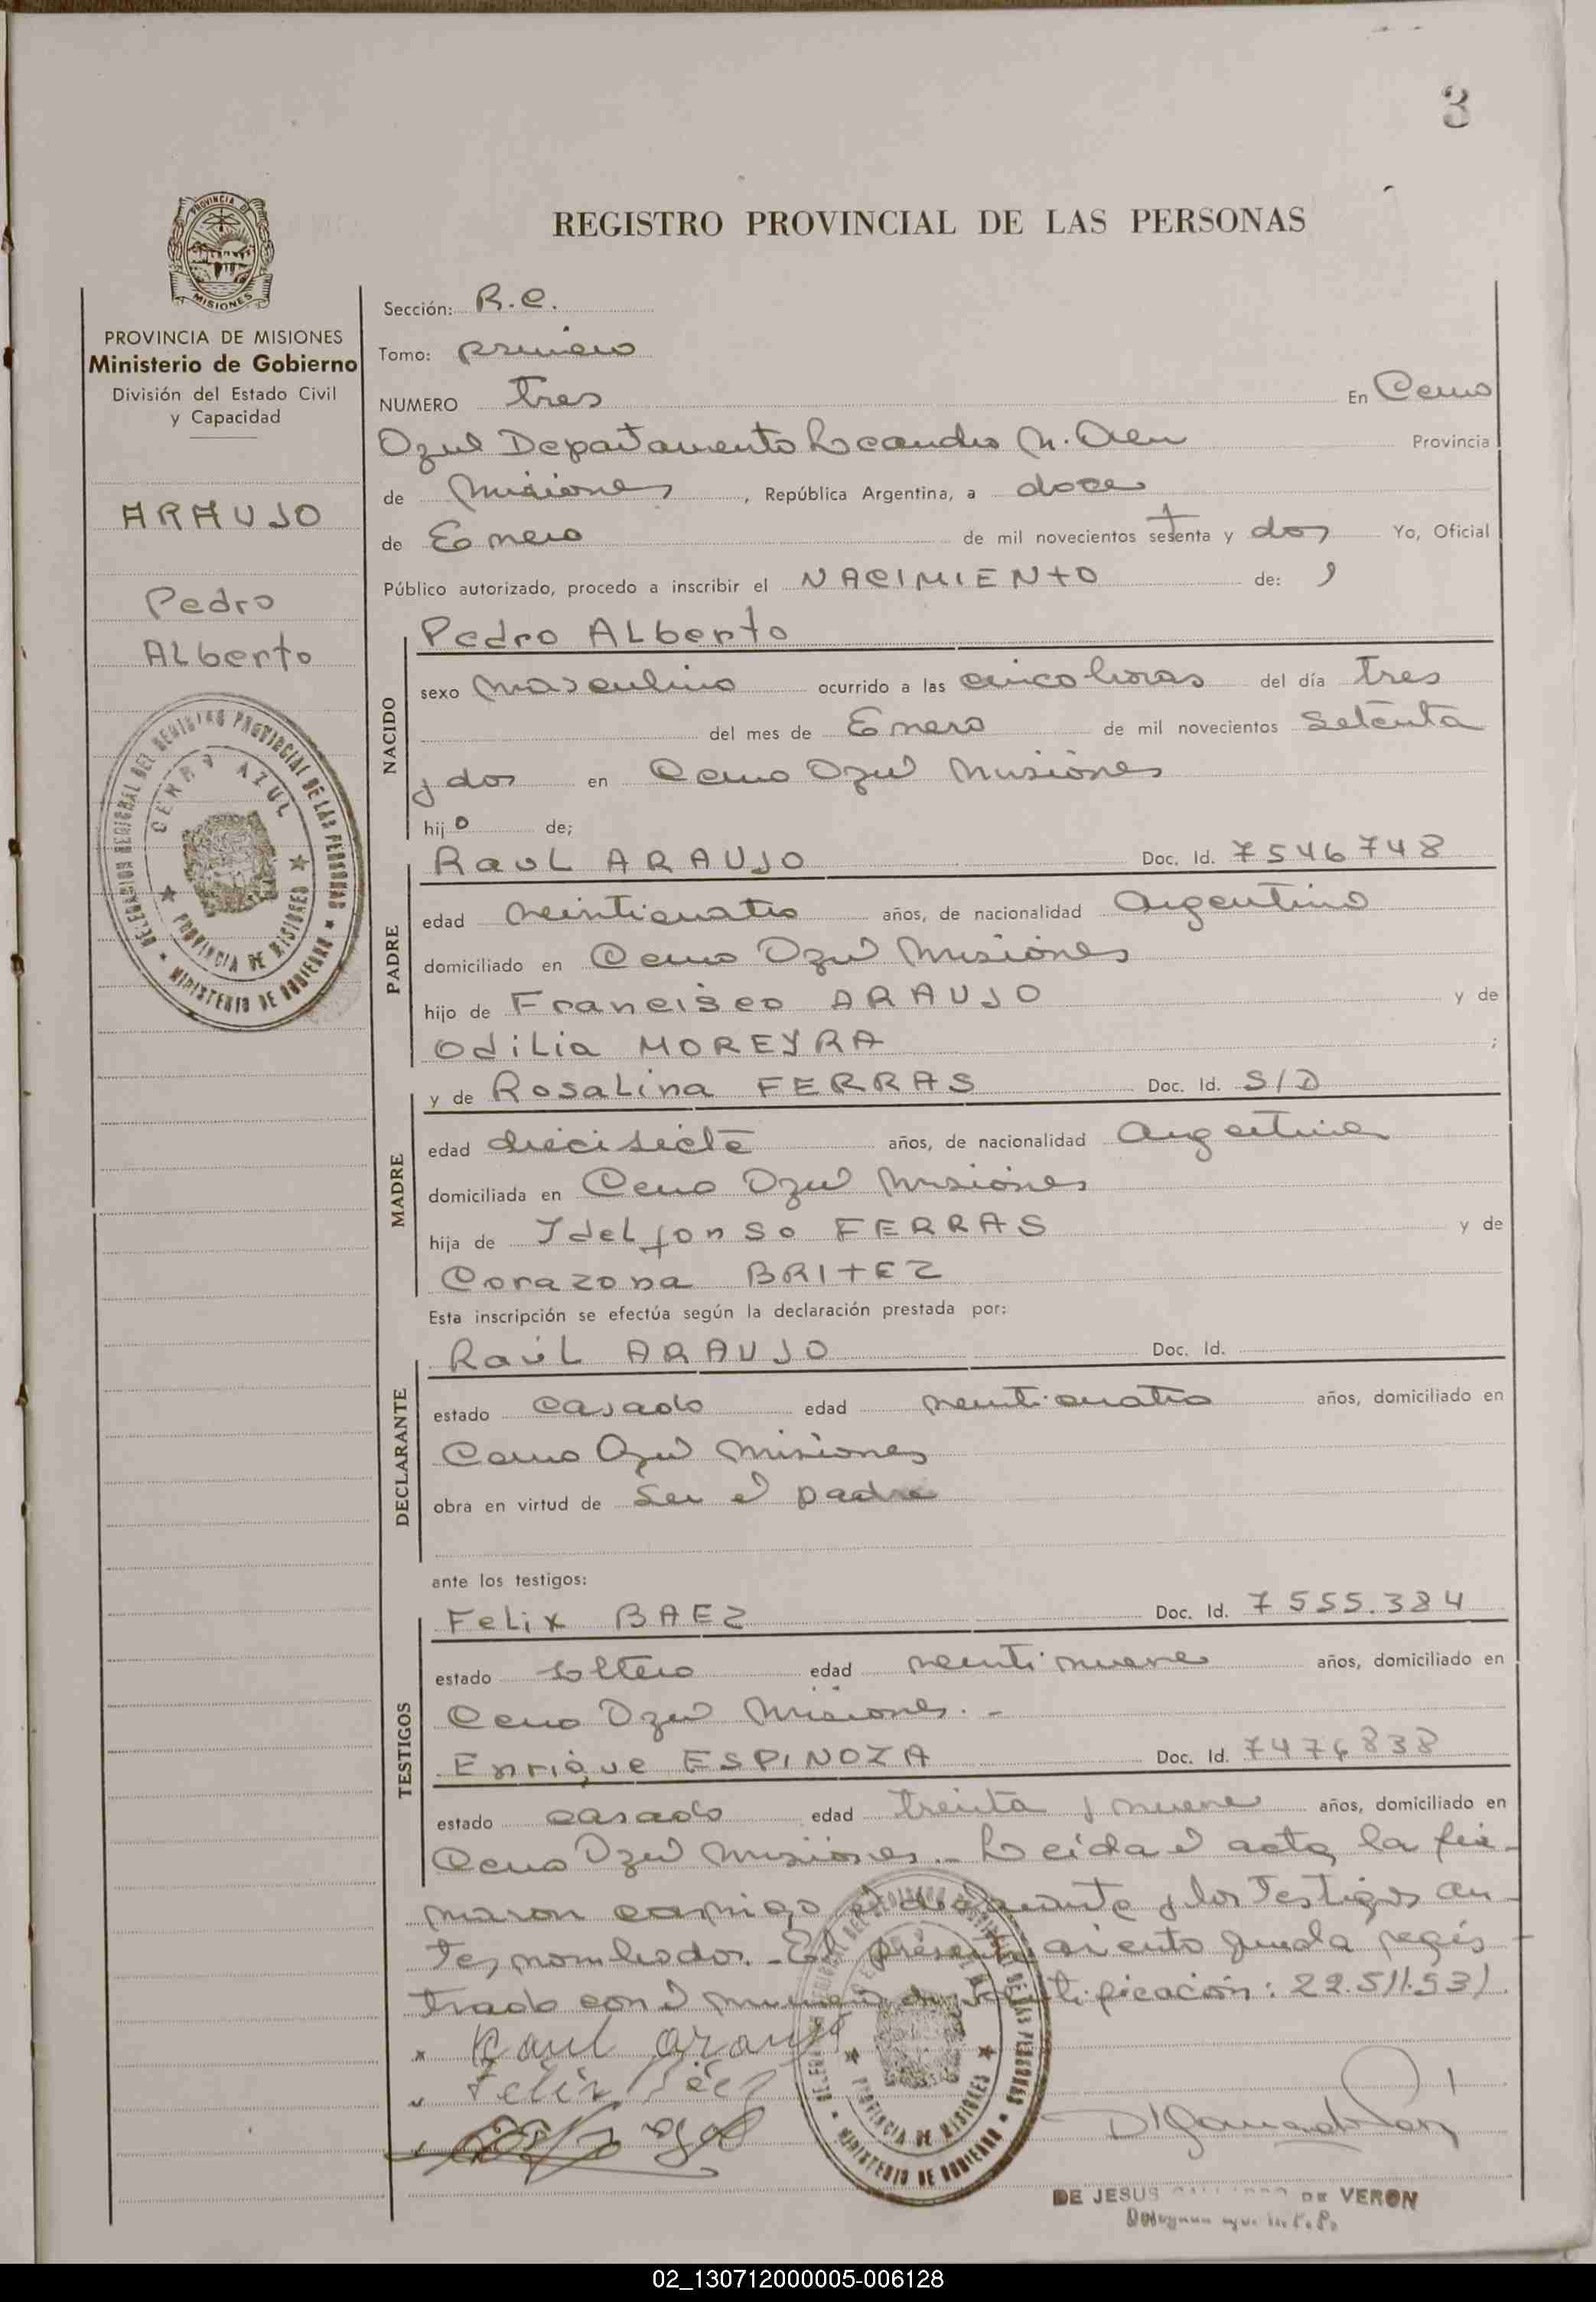 3
PROVINCIA DE
MISIONES
REGISTRO PROVINCIAL DE LAS PERSONAS
PROVINCIA DE MISIONES
Ministerio de Gobierno
División del Estado Civil
y Capacidad
ARAUJO
Pedro
ALberto
DELEGACION REGIONAL DEL REGISTRO PROVINCIAL DE LAS PERSONAS
CERRO AZUL
PROVINCIA DE MISIONES
MINISTERIO DE GOBIERNO
Sección: R.C.
Tomo: primero
NUMERO tres En Cerro
Azul Departamento Leandro N. Alem Provincia
de Misiones, República Argentina, a doce
de Enero de mil novecientos setenta y dos Yo, Oficial
Público autorizado, procedo a inscribir el NACIMIENTO de:
NACIDO
Pedro ALberto
sexo masculino ocurrido a las cinco horas del día tres
del mes de Enero de mil novecientos setenta
y dos en Cerro Azul Misiones
hijo de;
PADRE
RauL ARAUJO Doc. Id. 7546748
edad veinticuatro años, de nacionalidad Argentino
domiciliado en Cerro Azul Misiones
hijo de Francisco ARAUJO y de
OdiLia MOREYRA ;
MADRE
y de RosaLina FERRAS Doc. Id. S/D
edad diecisiete años, de nacionalidad Argentina
domiciliada en Cerro Azul Misiones
hija de IdeLfonso FERRAS y de
Corazona BRITEZ
Esta inscripción se efectúa según la declaración prestada por:
DECLARANTE
RaúL ARAUJO Doc. Id.
estado casado edad veinticuatro años, domiciliado en
Cerro Azul Misiones
obra en virtud de ser el padre
ante los testigos:
TESTIGOS
FeLix BAEZ Doc. Id. 7555.384
estado soltero edad veintinueve años, domiciliado en
Cerro Azul Misiones.-
Enrique ESPINOZA Doc. Id. 7476838
estado casado edad treinta y nueve años, domiciliado en
Cerro Azul Misiones.- Leida el acta, la fir-
maron conmigo el declarante y los Testigos an-
tes nombrados.- El presente asiento queda regis-
trado con el numero de identificación: 22.511.531
Raul Araujo
Felix Báez
DE JESUS DE VERON
02_130712000005-006128